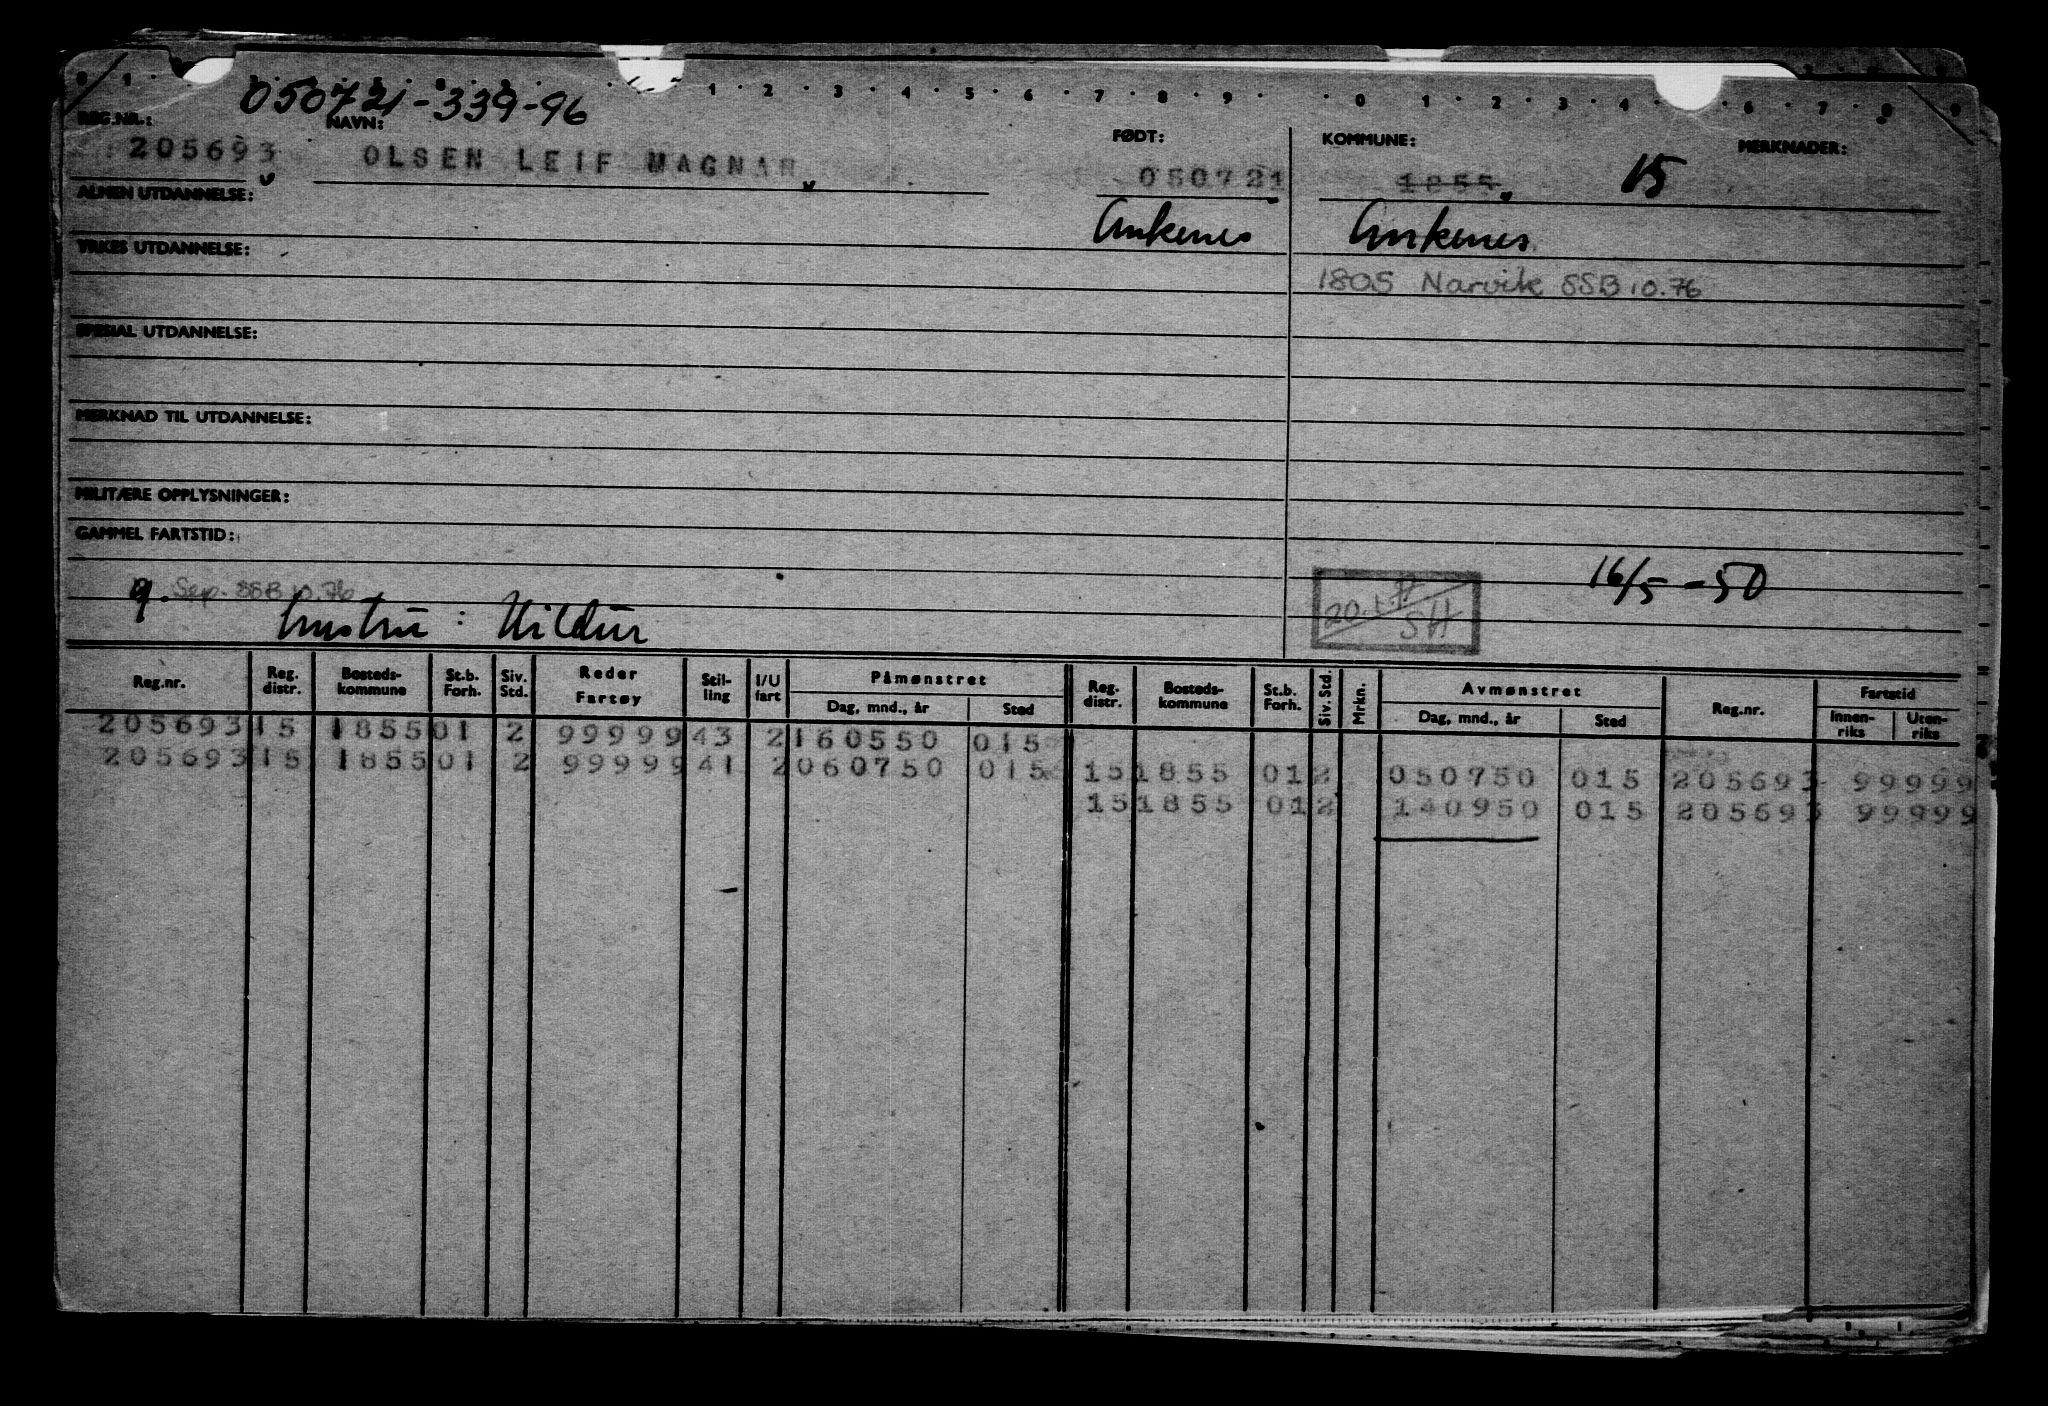 050721-339-96
REG.NR.: NAVN: FØDT: KOMMUNE: MERKNADER:
205693 OLSEN LEIF MAGNAR 050721 1855 15
ALMEN UTDANNELSE: Ankenes Ankenes
YRKES UTDANNELSE:
1805 Narvik SSB 10.76
SPESIAL UTDANNELSE:
MERKNAD TIL UTDANNELSE:
MILITÆRE OPPLYSNINGER:
GAMMEL FARTSTID:
16/5 - 50
g. Sep. SSB 10.76
hustru: Hildur
SH
Reg.nr. Reg. distr. Bosteds- kommune St.b. Forh. Siv. Std. Reder Fartøy Stil- ling I/U fart Påmønstret Dag, mnd., år Sted Reg. distr. Bosteds- kommune St.b. Forh. Siv. Std. Mrkn. Avmønstret Dag, mnd., år Sted Reg.nr. Fartstid Innen- riks Uten- riks
205693 15 1855 01 2 99999 43 2 160550 015
205693 15 1855 01 2 99999 41 2 060750 015 15 1855 01 2 050750 015 205693 99999
15 1855 01 2 140950 015 205693 99999